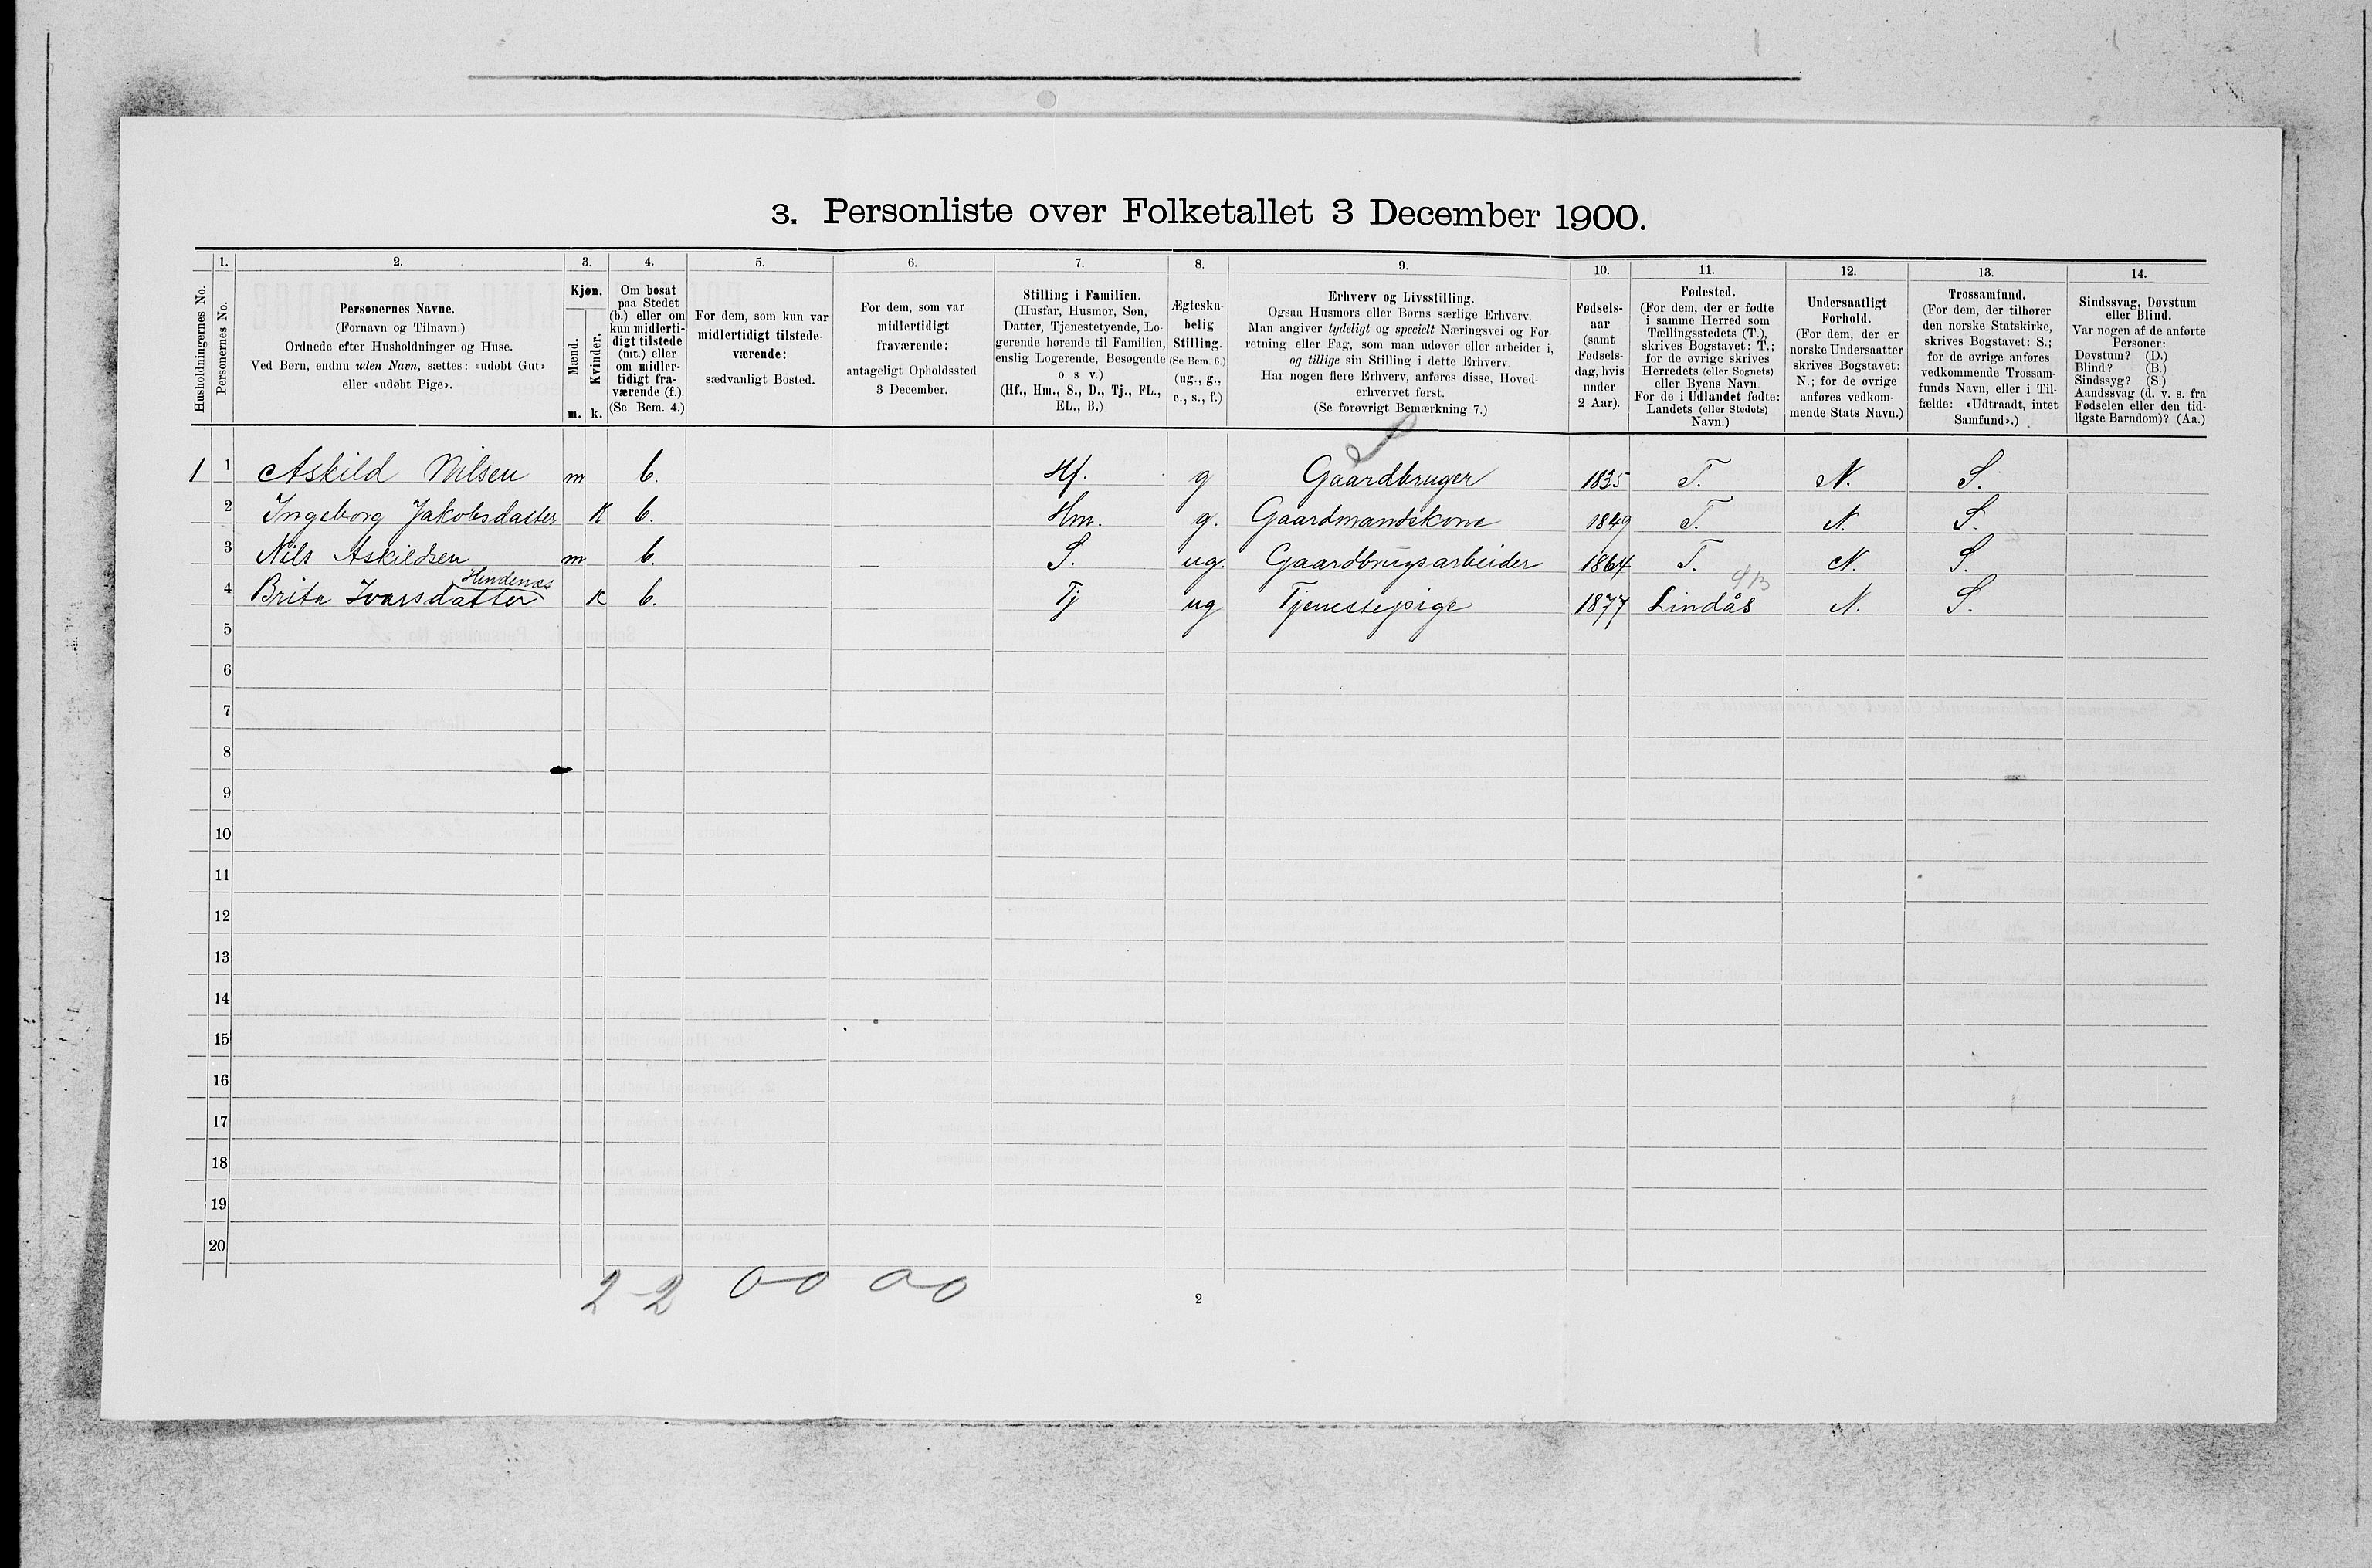 3. Personliste over Folketallet 3 December 1900.
1. 2. 3. 4. 5. 6. 7. 8. 9. 10. 11. 12. 13. 14.
Husholdningernes No.
Personernes No.
Personernes Navne.
(Fornavn og Tilnavn.)
Ordnede efter Husholdninger og Huse.
Ved Børn, endnu uden Navn, sættes: «udøbt Gut»
eller «udøbt Pige».
Kjøn.
Mænd.
Kvinder.
m. k.
Om bosat
paa Stedet
(b.) eller om
kun midlerti-
digt tilstede
(mt.) eller
om midler-
tidigt fra-
værende (f.).
(Se Bem. 4.)
For dem, som kun var
midlertidigt tilstede-
værende:
sædvanligt Bosted.
For dem, som var
midlertidigt
fraværende:
antageligt Opholdssted
3 December.
Stilling i Familien.
(Husfar, Husmor, Søn,
Datter, Tjenestetyende, Lo-
gerende hørende til Familien,
enslig Logerende, Besøgende
o. s v.)
(Hf., Hm., S., D., Tj., FL.,
EL., B.)
Ægteska-
belig
Stilling.
(Se Bem. 6.)
(ug., g.,
e., s., f.)
Erhverv og Livsstilling.
Ogsaa Husmors eller Børns særlige Erhverv.
Man angiver tydeligt og specielt Næringsvei og For-
retning eller Fag, som man udøver eller arbeider i,
og tillige sin Stilling i dette Erhverv.
Har nogen flere Erhverv, anføres disse, Hoved-
erhvervet først.
(Se forøvrigt Bemærkning 7.)
Fødsels-
aar
(samt
Fødsels-
dag, hvis
under
2 Aar).
Fødested.
(For dem, der er fødte
i samme Herred som
Tællingsstedets (T.),
skrives Bogstavet: T.;
for de øvrige skrives
Herredets (eller Sognets)
eller Byens Navn.
For de i Udlandet fødte:
Landets (eller Stedets)
Navn.)
Undersaatligt
Forhold.
(For dem, der er
norske Undersaatter
skrives Bogstavet:
N.; for de øvrige
anføres vedkom-
mende Stats Navn.)
Trossamfund.
(For dem, der tilhører
den norske Statskirke,
skrives Bogstavet: S.;
for de øvrige anføres
vedkommende Trossam-
funds Navn, eller i Til-
fælde: «Udtraadt, intet
Samfund».)
Sindssvag, Døvstum
eller Blind.
Var nogen af de anførte
Personer:
Døvstum? (D.)
Blind? (B.)
Sindssyg? (S.)
Aandssvag (d. v. s. fra
Fødselen eller den tid-
ligste Barndom)? (Aa.)
1 1 Askild Nilsen m b. Hf. g Gaardbruger 1835 T. N. S.
2 Ingeborg Jakobsdatter K b. Hm. g. Gaardmandskone 1849 T. N. S.
3 Nils Askildsen m b. S. ug. Gaardbrugsarbeider 1864 T. N. S.
Hindenæs
4 Brita Ivarsdatter K b. Tj ug Tjenestepige 1877 Lindås N. S.
5
6
7
8
9
10
11
12
13
14
15
16
17
18
19
20
2 - 2 0 - 0 0 - 0
2